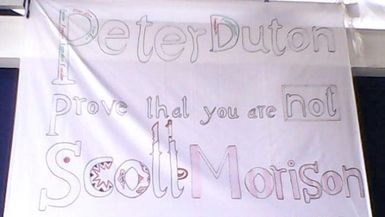 Peter Duton
Prove that you are not
Scott Morison